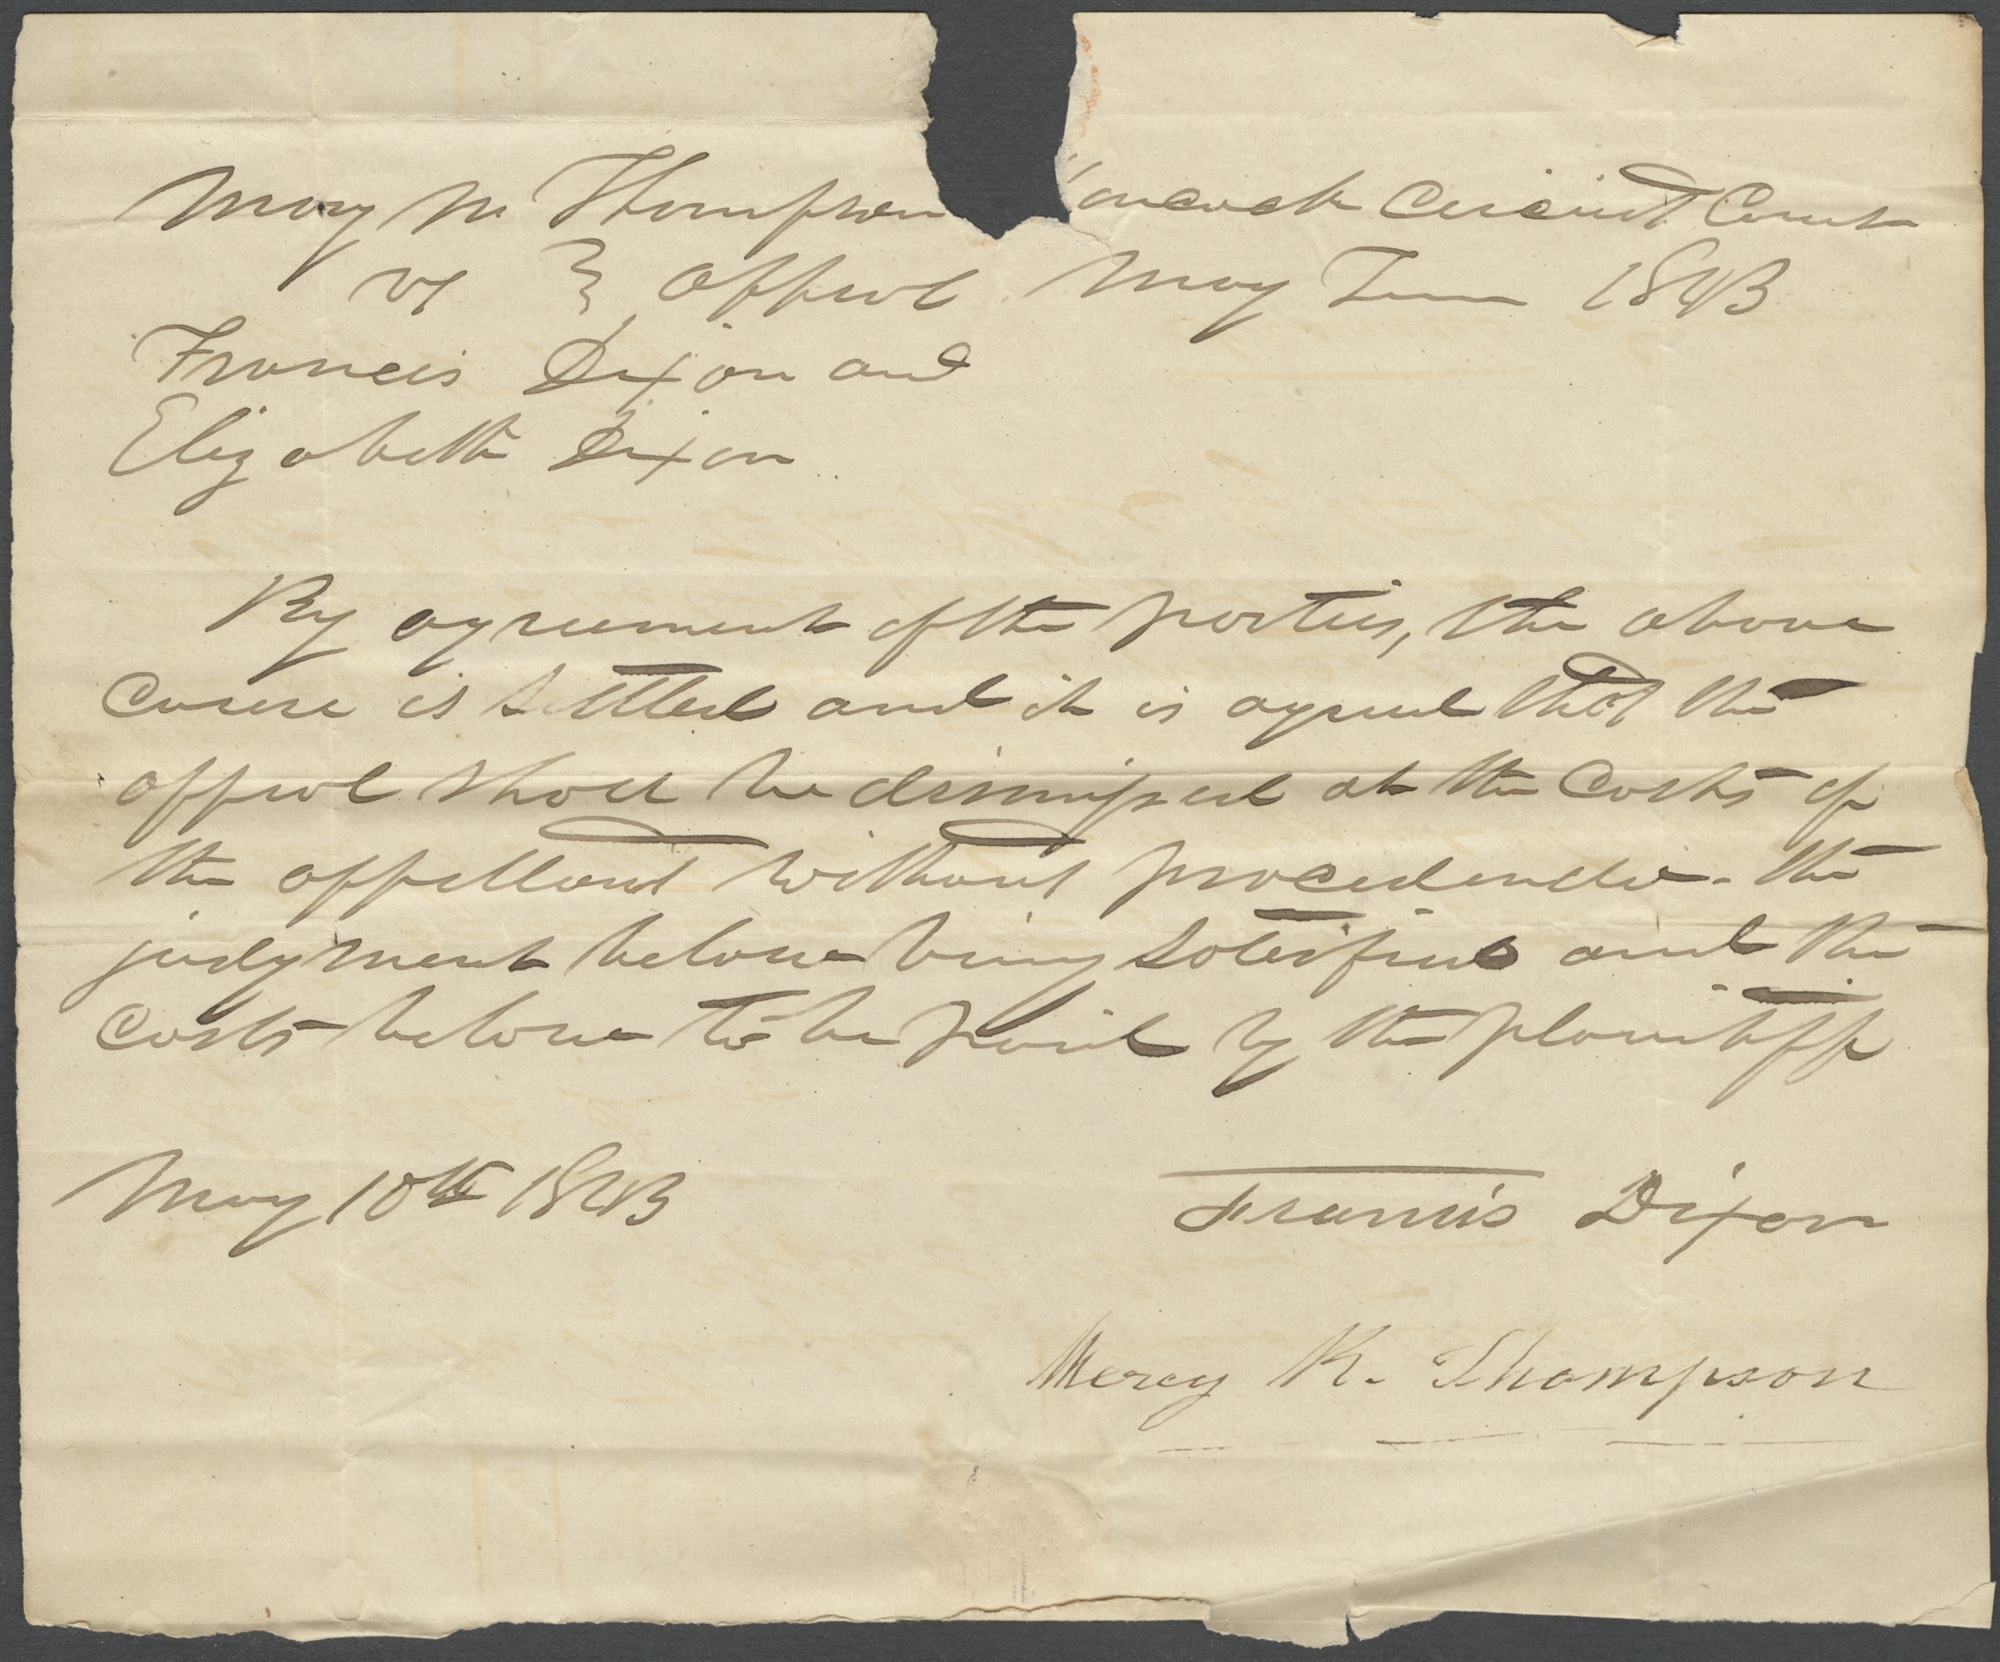 Mary M Thompson Hancock Circuit Court
vs } Appeal May Term 1843
Francis Dixon and
Elizabeth Dixon
By agreement of the parties, the above
cause is settled and it is agreed that the
appeal shall be dismissed at the costs of
the appellant without procedendo - the
judgment below being satisfied and the
costs below to be paid by the plaintiff
May 10th 1843
Francis Dixon
Mercy R. Thompson